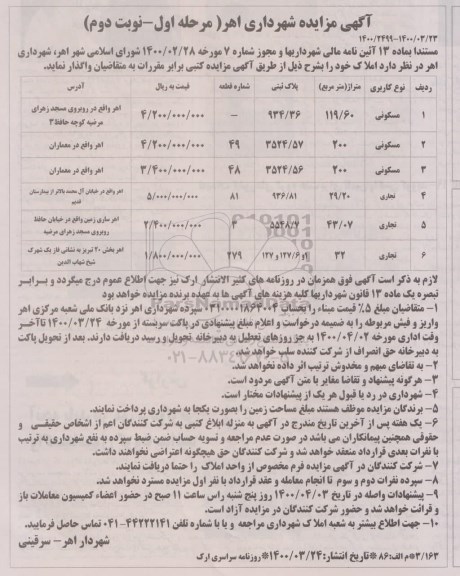 آگهی مزایده شهرداری اهر( مرحله اول-نوبت دوم)
۱۴۰۰/۲۴۹۹-۱۴۰۰/۰۳/۲۳
مستندا بماده ۱۳ آئین نامه مالی شهرداریها و مجوز شماره ۷ مورخه ۱۴۰۰/۰۲/۲۸ شورای اسلامی شهر اهر، شهرداری
اهر در نظر دارد املاک خود را بشرح ذیل از طریق آگهی مزایده کتبی برابر مقررات به متقاضیان واگذار نماید.
ردیف نوع کاربری متراژ(متر مربع) پلاک ثبتی شماره قطعه قیمت به ریال آدرس
۱ مسکونی ۱۱۹/۶۰ ۹۳۴/۳۶ - ۴/۲۰۰/۰۰۰/۰۰۰ اهر واقع در روبروی مسجد زهرای
مرضیه کوچه حافظ۳
۲ مسکونی ۲۰۰ ۳۵۲۴/۵۷ ۴۹ ۴/۲۰۰/۰۰۰/۰۰۰ اهر واقع در معماران
۳ مسکونی ۲۰۰ ۳۵۲۴/۵۶ ۴۸ ۳/۴۰۰/۰۰۰/۰۰۰ اهر واقع در معماران
۴ تجاری ۲۹/۲۰ ۹۳۶/۸۱ ۸۱ ۵/۰۰۰/۰۰۰/۰۰۰ اهر واقع در خیابان آل محمد بالاتر از بیمارستان
قدیم
۵ تجاری ۴۳/۰۷ ۵۵۴۸/۷ ۳ ۲/۴۰۰/۰۰۰/۰۰۰ اهر ساری زمین واقع در خیابان حافظ
روبروی مسجد زهرای مرضیه
۶ تجاری ۳۲ ۱۲۷/۶ و ۱۲۷ ۲۷۹ ۱/۸۰۰/۰۰۰/۰۰۰ اهر بخش ۲۰ تبریز به نشانی فاز یک شهرک
شیخ شهاب الدین
لازم به ذکر است آگهی فوق همزمان در روزنامه های کثیر الانتشار ارک نیز جهت اطلاع عموم درج میگردد و برابر
تبصره یک ماده ۱۳ قانون شهرداریها کلیه هزینه های آگهی ها به عهده برنده مزایده خواهد بود
۱- متقاضیان مبلغ ۵٪ قیمت مبناء را بحساب ۳۱۰۰۰۰۱۸۶۴۰۰۴ سپرده شهرداری اهر نزد بانک ملی شعبه مرکزی اهر
واریز و فیش مربوطه را به ضمیمه درخواست و اعلام مبلغ پیشنهادی در پاکت سربسته از مورخه ۱۴۰۰/۰۳/۲۴ تاآخر
وقت اداری مورخه ۱۴۰۰/۰۴/۰۲ به جز روزهای تعطیل به دبیرخانه تحویل و رسید دریافت دارند. بعد از تحویل پاکت
به دبیرخانه حق انصراف از شرکت کننده سلب خواهد شد.
۲- به تقاضای مبهم و مخدوش ترتیب اثر داده نخواهد شد.
۳- هرگونه پیشنهاد و تقاضا مغایر با متن آگهی مردود است.
۴- شهرداری در رد یا قبول هر یک از پیشنهادات مختار است.
۵- برندگان مزایده موظف هستند مبلغ مساحت زمین را بصورت یکجا به شهرداری پرداخت نمایند.
۶- یک هفته پس از آخرین تاریخ مندرج در آگهی به منزله ابلاغ کتبی به شرکت کنندگان اعم از اشخاص حقیقی و
حقوقی همچنین پیمانکاران می باشد در صورت عدم مراجعه و تسویه حساب ضمن ضبط سپرده به نفع شهرداری به ترتیب
با نفرات بعدی قرارداد منعقد خواهد شد و شرکت کنندگان حق هیچگونه اعتراضی نخواهند داشت.
۷- شرکت کنندگان در آگهی مزایده فرم مخصوص از واحد املاک را حتما دریافت نمایند.
۸- سپرده نفرات دوم و سوم تا انجام معامله و عقد قرارداد با نفر اول مزایده مسترد نخواهد شد.
۹- پیشنهادات واصله در تاریخ ۱۴۰۰/۰۴/۰۳ روز پنج شنبه راس ساعت ۱۱ صبح در حضور اعضاء کمیسیون معاملات باز
و قرائت خواهد شد و حضور شرکت کنندگان در مزایده آزاد است.
۱۰- جهت اطلاع بیشتر به شعبه املاک شهرداری مراجعه و یا با شماره تلفن ۴۴۲۲۲۱۴۱-۰۴۱ تماس حاصل فرمایید.
شهردار اهر- سرقینی
۳/۱۶۳*م الف:۸۶ *تاریخ انتشار:۱۴۰۰/۰۳/۲۴*روزنامه سراسری ارک